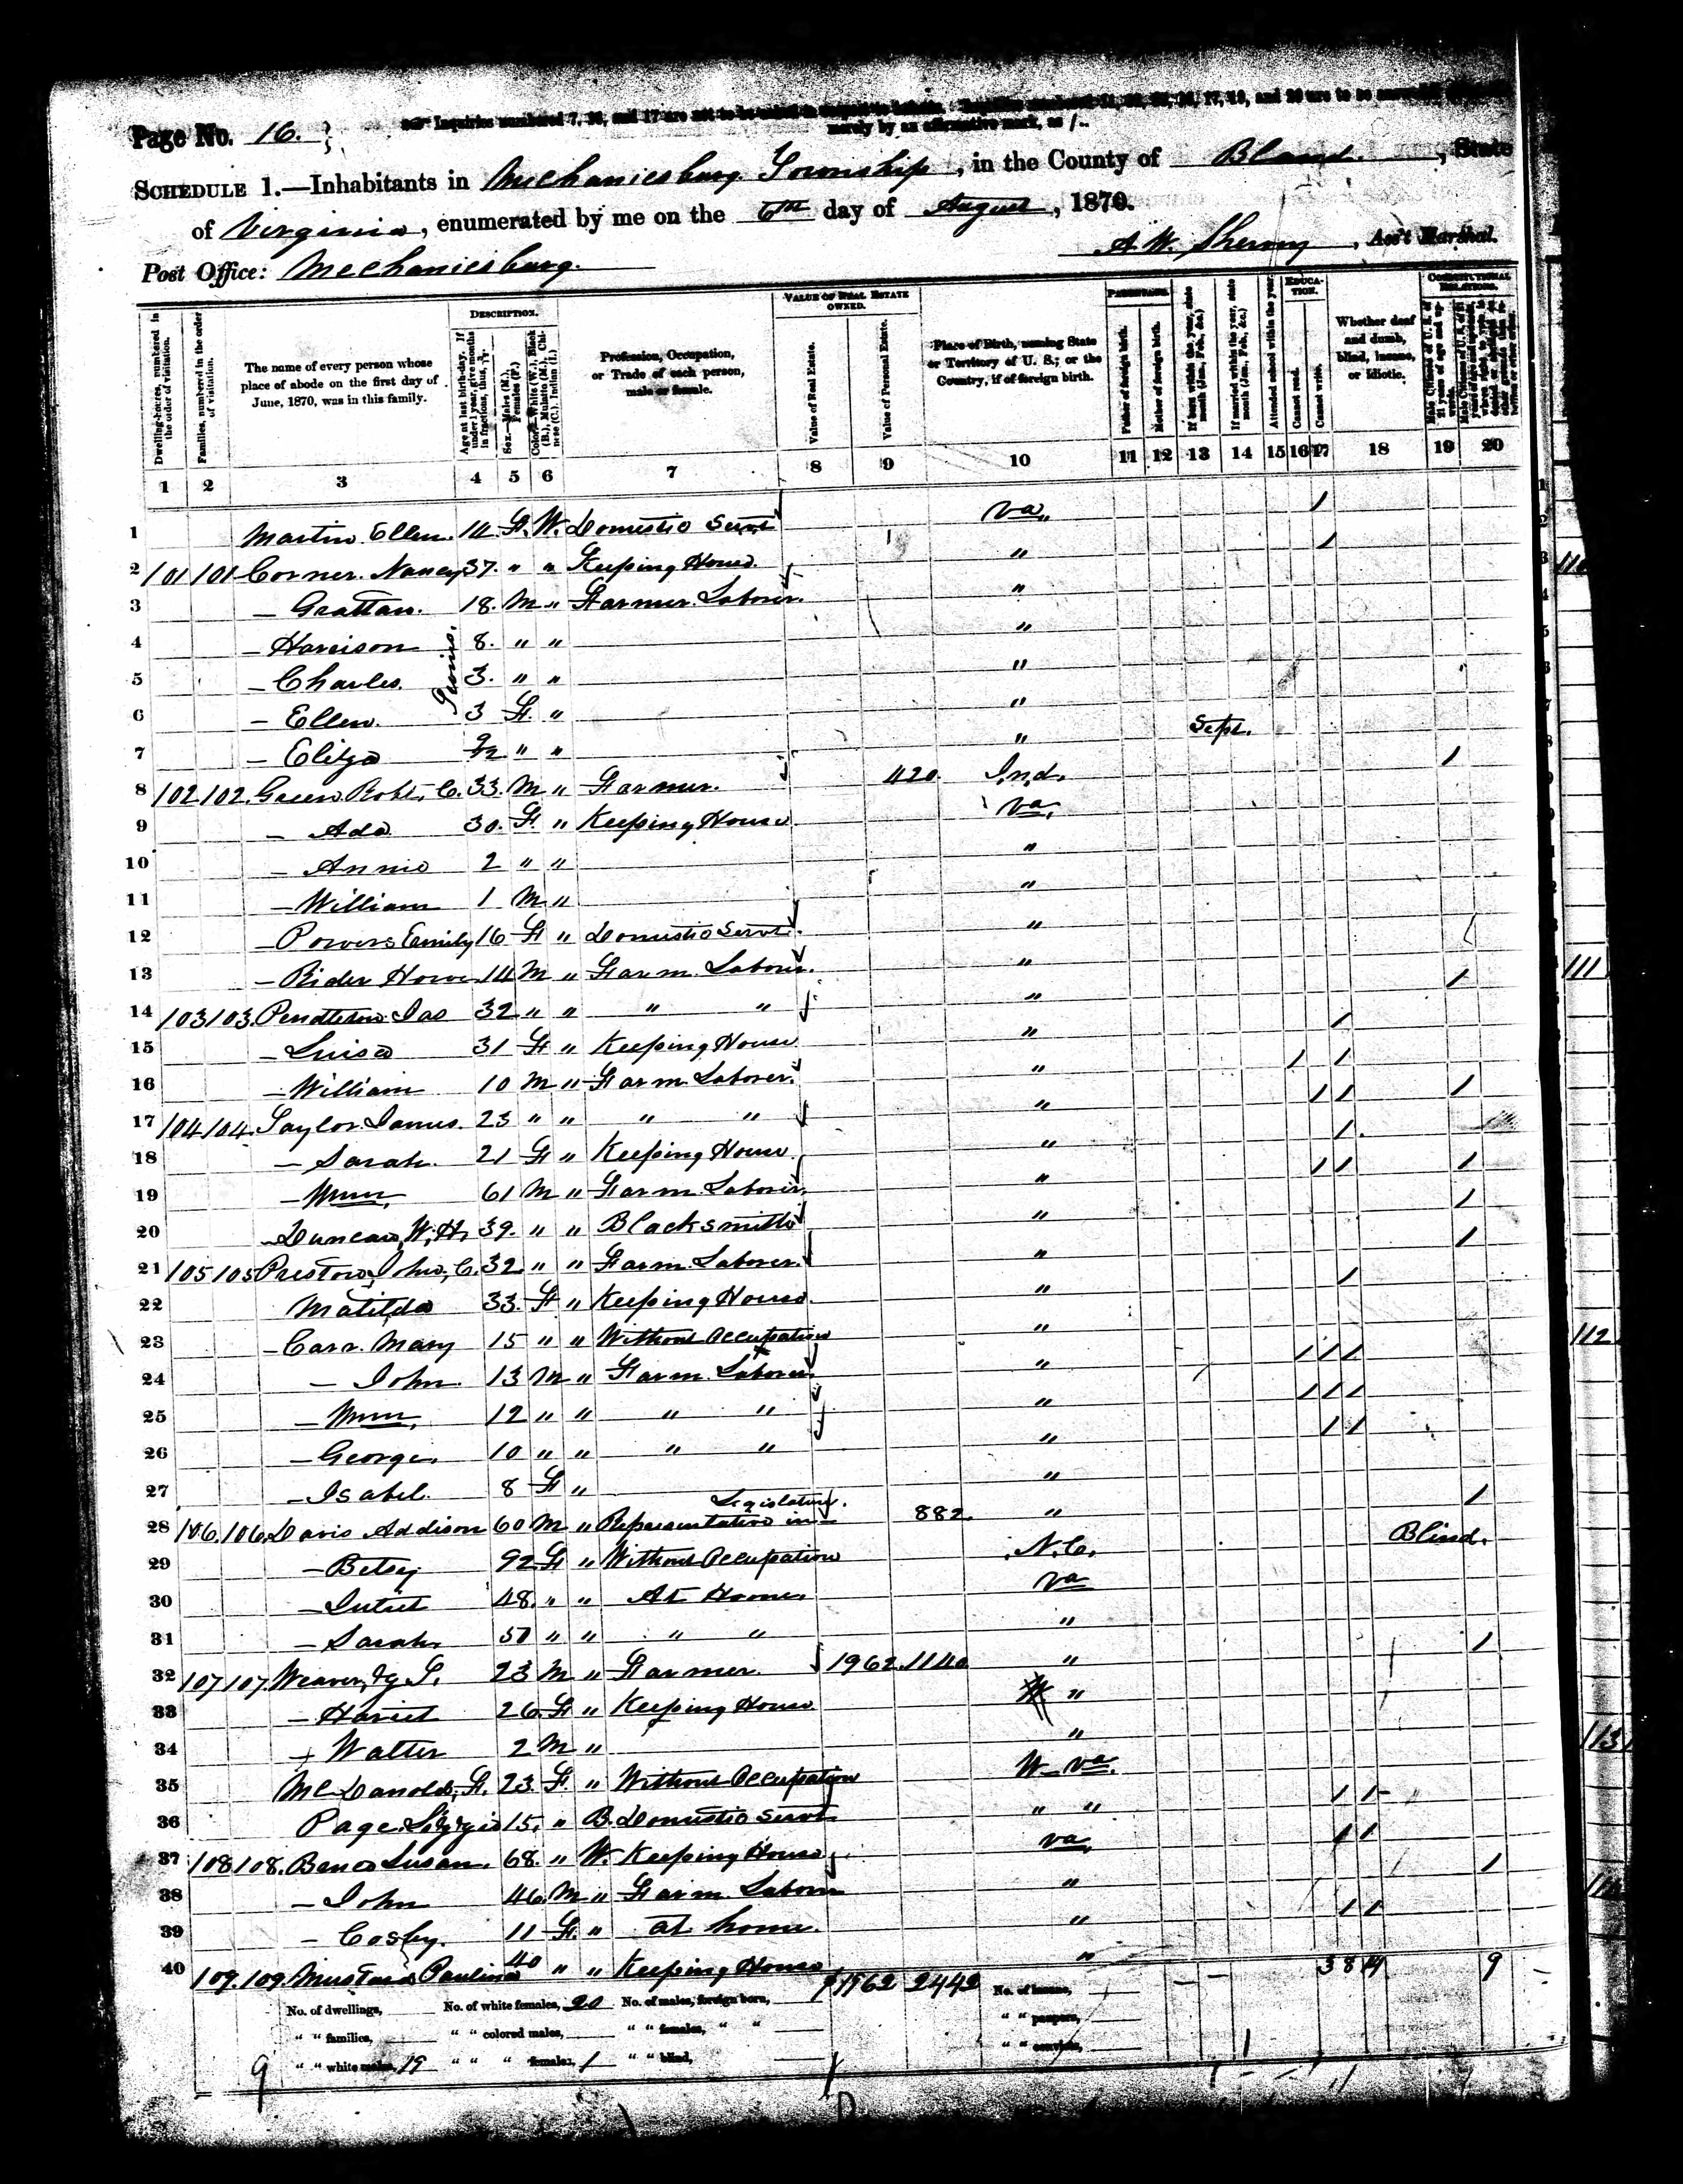 Page No. 16.
Inquiries numbered 7, 16, and 17 are not to be asked in respect to infants.
merely by an affirmative mark, as /.
SCHEDULE 1.—Inhabitants in Mechanicsburg Township, in the County of Bland, State
of Virginia, enumerated by me on the 6th day of August, 1870.
Post Office: Mechanicsburg.
A. W. , Ass't Marshal.
Dwelling-houses, numbered in the order of visitation.
Families, numbered in the order of visitation.
The name of every person whose place of abode on the first day of June, 1870, was in this family.
DESCRIPTION.
Age at last birth-day. If under 1 year, give months in fractions, thus,
Sex.—Males (M.), Females (F.)
Color.—White (W.), Black (B.), Mulatto (M.), Chinese (C.), Indian (I.)
Profession, Occupation, or Trade of each person, male or female.
VALUE OF REAL ESTATE OWNED.
Value of Real Estate.
Value of Personal Estate.
Place of Birth, naming State or Territory of U. S.; or the Country, if of foreign birth.
PARENTAGE.
Father of foreign birth.
Mother of foreign birth.
If born within the year, state month (Jan., Feb., &c.)
If married within the year, state month (Jan., Feb., &c.)
Attended school within the year.
EDUCATION.
Cannot read.
Cannot write.
Whether deaf and dumb, blind, insane, or idiotic.
CONSTITUTIONAL RELATIONS.
1 2 3 4 5 6 7 8 9 10 11 12 13 14 15 16 17 18 19 20
1 Martin Ellen. 14 F. W. Domestic Servt Va,, /
2 101 101 Corner. Nancy 37. " " Keeping House. " /
3 — Grattan. 18. M " Farmer Laborer. "
4 — Harrison 8. " " "
5 — Charles. 3. " " "
6 — Ellen. 3 F. " "
7 — Eliza 9/12 " " " Sept.
8 102 102. Green Robt, C. 33. M " Farmer. 420. Ind. /
9 — Ada 30. F. " Keeping House Va,
10 — Annie 2 " " "
11 — William 1 M " "
12 — Powers Emily 16 F " Domestic Servt. "
13 — Rider Howe 14 M " Farm Laborer. "
14 103 103. Jas 32 " " " " " /
15 — Luisa 31 F " Keeping House " /
16 — William 10 M " Farm Laborer. " / /
17 104 104. Taylor James. 23 " " " " " / / /
18 — Sarah. 21 F " Keeping House " /
19 — Wm, 61 M " Farm Laborer, " / / /
20 — Duncan, W. H, 39. " " Blacksmith " /
21 105 105 Preston, Jno, C. 32. " " Farm Laborer. " /
22 Matilda 33. F " Keeping House. " /
23 — Carr. Mary 15 " " Without Occupation "
24 — John. 13 M " Farm Laborer. " / / /
25 — Wm, 12 " " " " " / / /
26 — George, 10 " " " " " / /
27 — Isabel. 8 F " "
28 106. 106. Davis Addison 60 M " Representative in Legislature. 882. " /
29 — Betsy 92 F " Without Occupation N. C. Blind.
30 — 48. " " At Home Va
31 — Sarah, " " " " "
32 107 107. Weaver, 23 M " Farmer. 1962. 1140 " /
33 — Hariet 26. F " Keeping House "
34 — Walter 2 M " "
35 23. F. " Without Occupation W. Va.
36 Page. Lizzie 15. " B. Domestic Servt " " / /
37 108 108. Susan. 68. " W. Keeping House Va, / /
38 — John 46. M " Farm Laborer " /
39 — Cosby. 11 F. " at home. " / /
40 109. 109. Mustard Paulina 40 " " Keeping House "
No. of dwellings, No. of white females, 20 No. of males, foreign born, 1962 2442 No. of insane, 3 8 14 9
" " families, " " colored males, " " females, " " " " paupers,
9 " " white males, 19 " " " females, 1 " " blind, " " convicts,
111
112
113